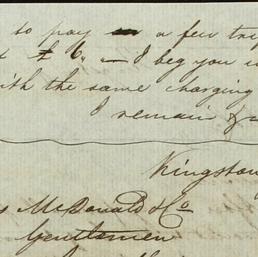 to pay in a few
£6. — I beg you
the same charging
I remain &c
Kingston
McDonald & Co
Gentlemen